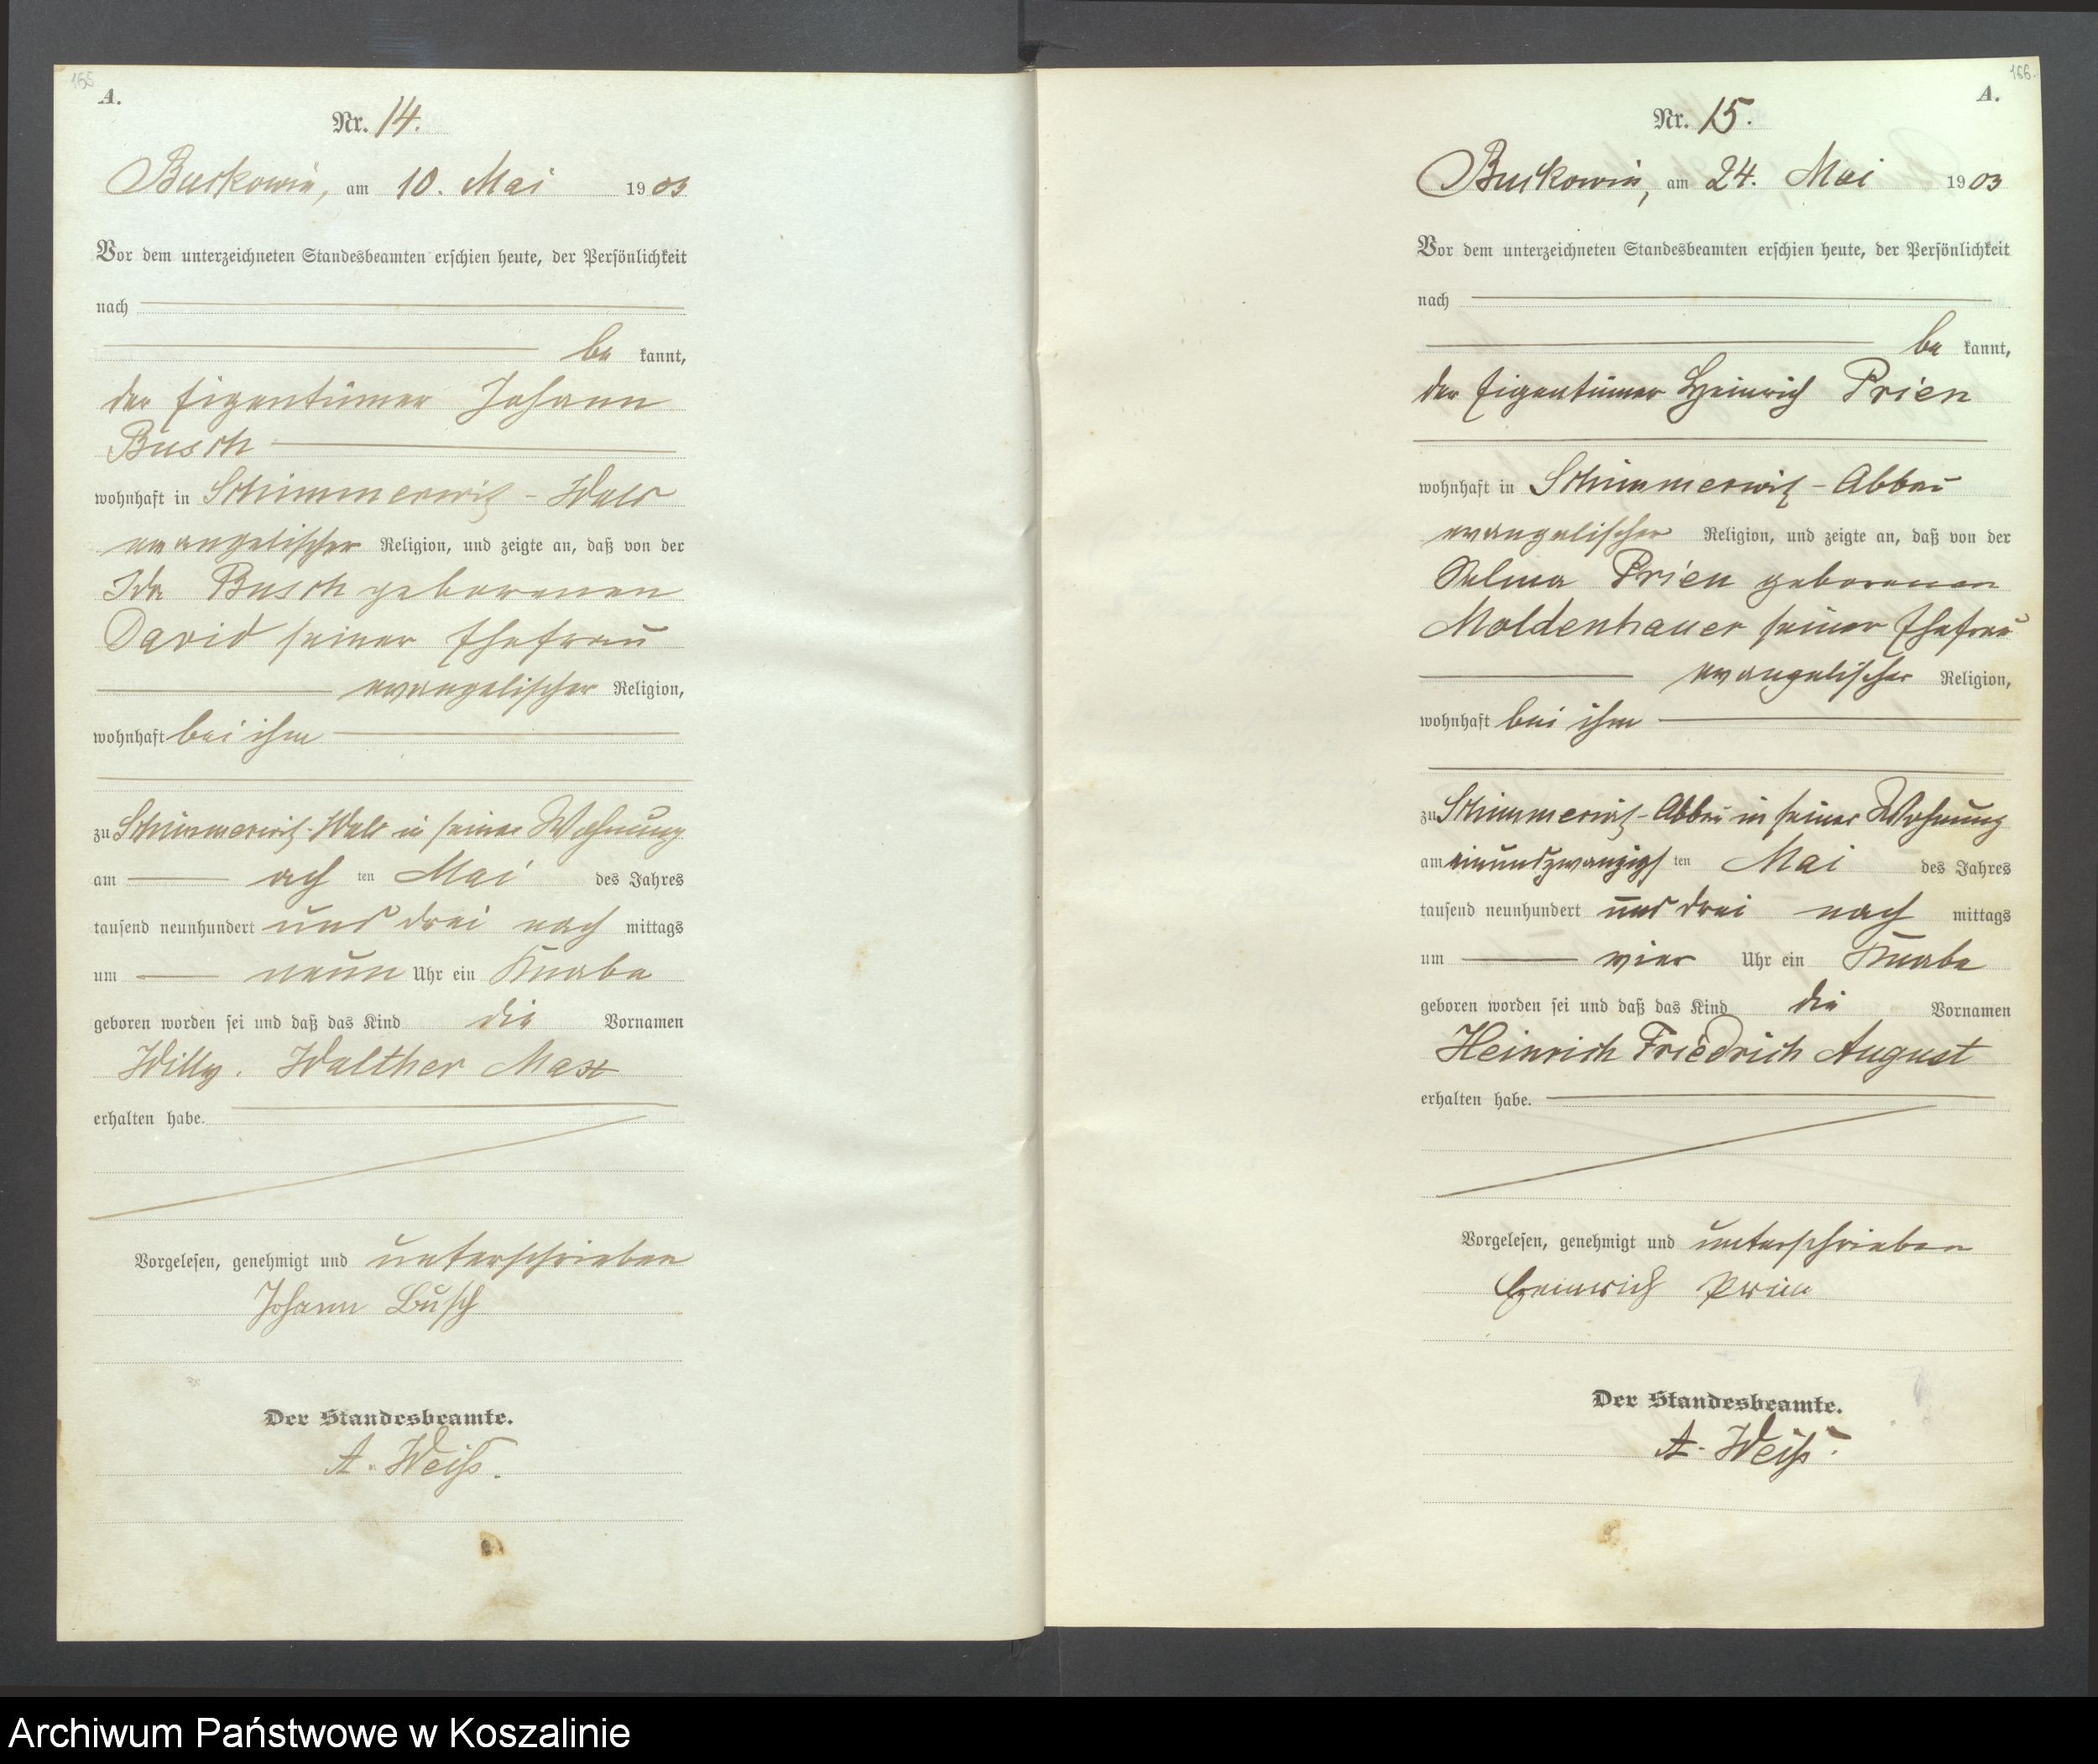 155
A.
Nr. 14.
Buckowin, am 10. Mai 1903
Vor dem unterzeichneten Standesbeamten erschien heute, der Persönlichkeit
nach
be kannt,
der Eigentümer Johann
Busch
wohnhaft in Schimmerwitz - Wald
evangelischer Religion, und zeigte an, daß von der
Ida Busch geborenen
David seiner Ehefrau
evangelischer Religion,
wohnhaft bei ihm
zu Schimmerwitz-Wald in seiner Wohnung
am acht ten Mai des Jahres
tausend neunhundert und drei nach mittags
um neun Uhr ein Knabe
geboren worden sei und daß das Kind die Vornamen
Willy. Walther Max
erhalten habe.
Vorgelesen, genehmigt und unterschrieben
Johann Busch
Der Standesbeamte.
A. Weiß.
166.
A.
Nr. 15.
Buckowin, am 24. Mai 1903
Vor dem unterzeichneten Standesbeamten erschien heute, der Persönlichkeit
nach
be kannt,
der Eigentümer Heinrich Prien
wohnhaft in Schimmerwitz - Abbau
evangelischer Religion, und zeigte an, daß von der
Selma Prien geborenen
Moldenhauer seiner Ehefrau
evangelischer Religion,
wohnhaft bei ihm
zu Schimmerwitz-Abbau in seiner Wohnung
am einundzwanzigs ten Mai des Jahres
tausend neunhundert und drei nach mittags
um vier Uhr ein Knabe
geboren worden sei und daß das Kind die Vornamen
Heinrich Friedrich August
erhalten habe.
Vorgelesen, genehmigt und unterschrieben
Heinrich Prien
Der Standesbeamte.
A. Weiß.
Archiwum Państwowe w Koszalinie